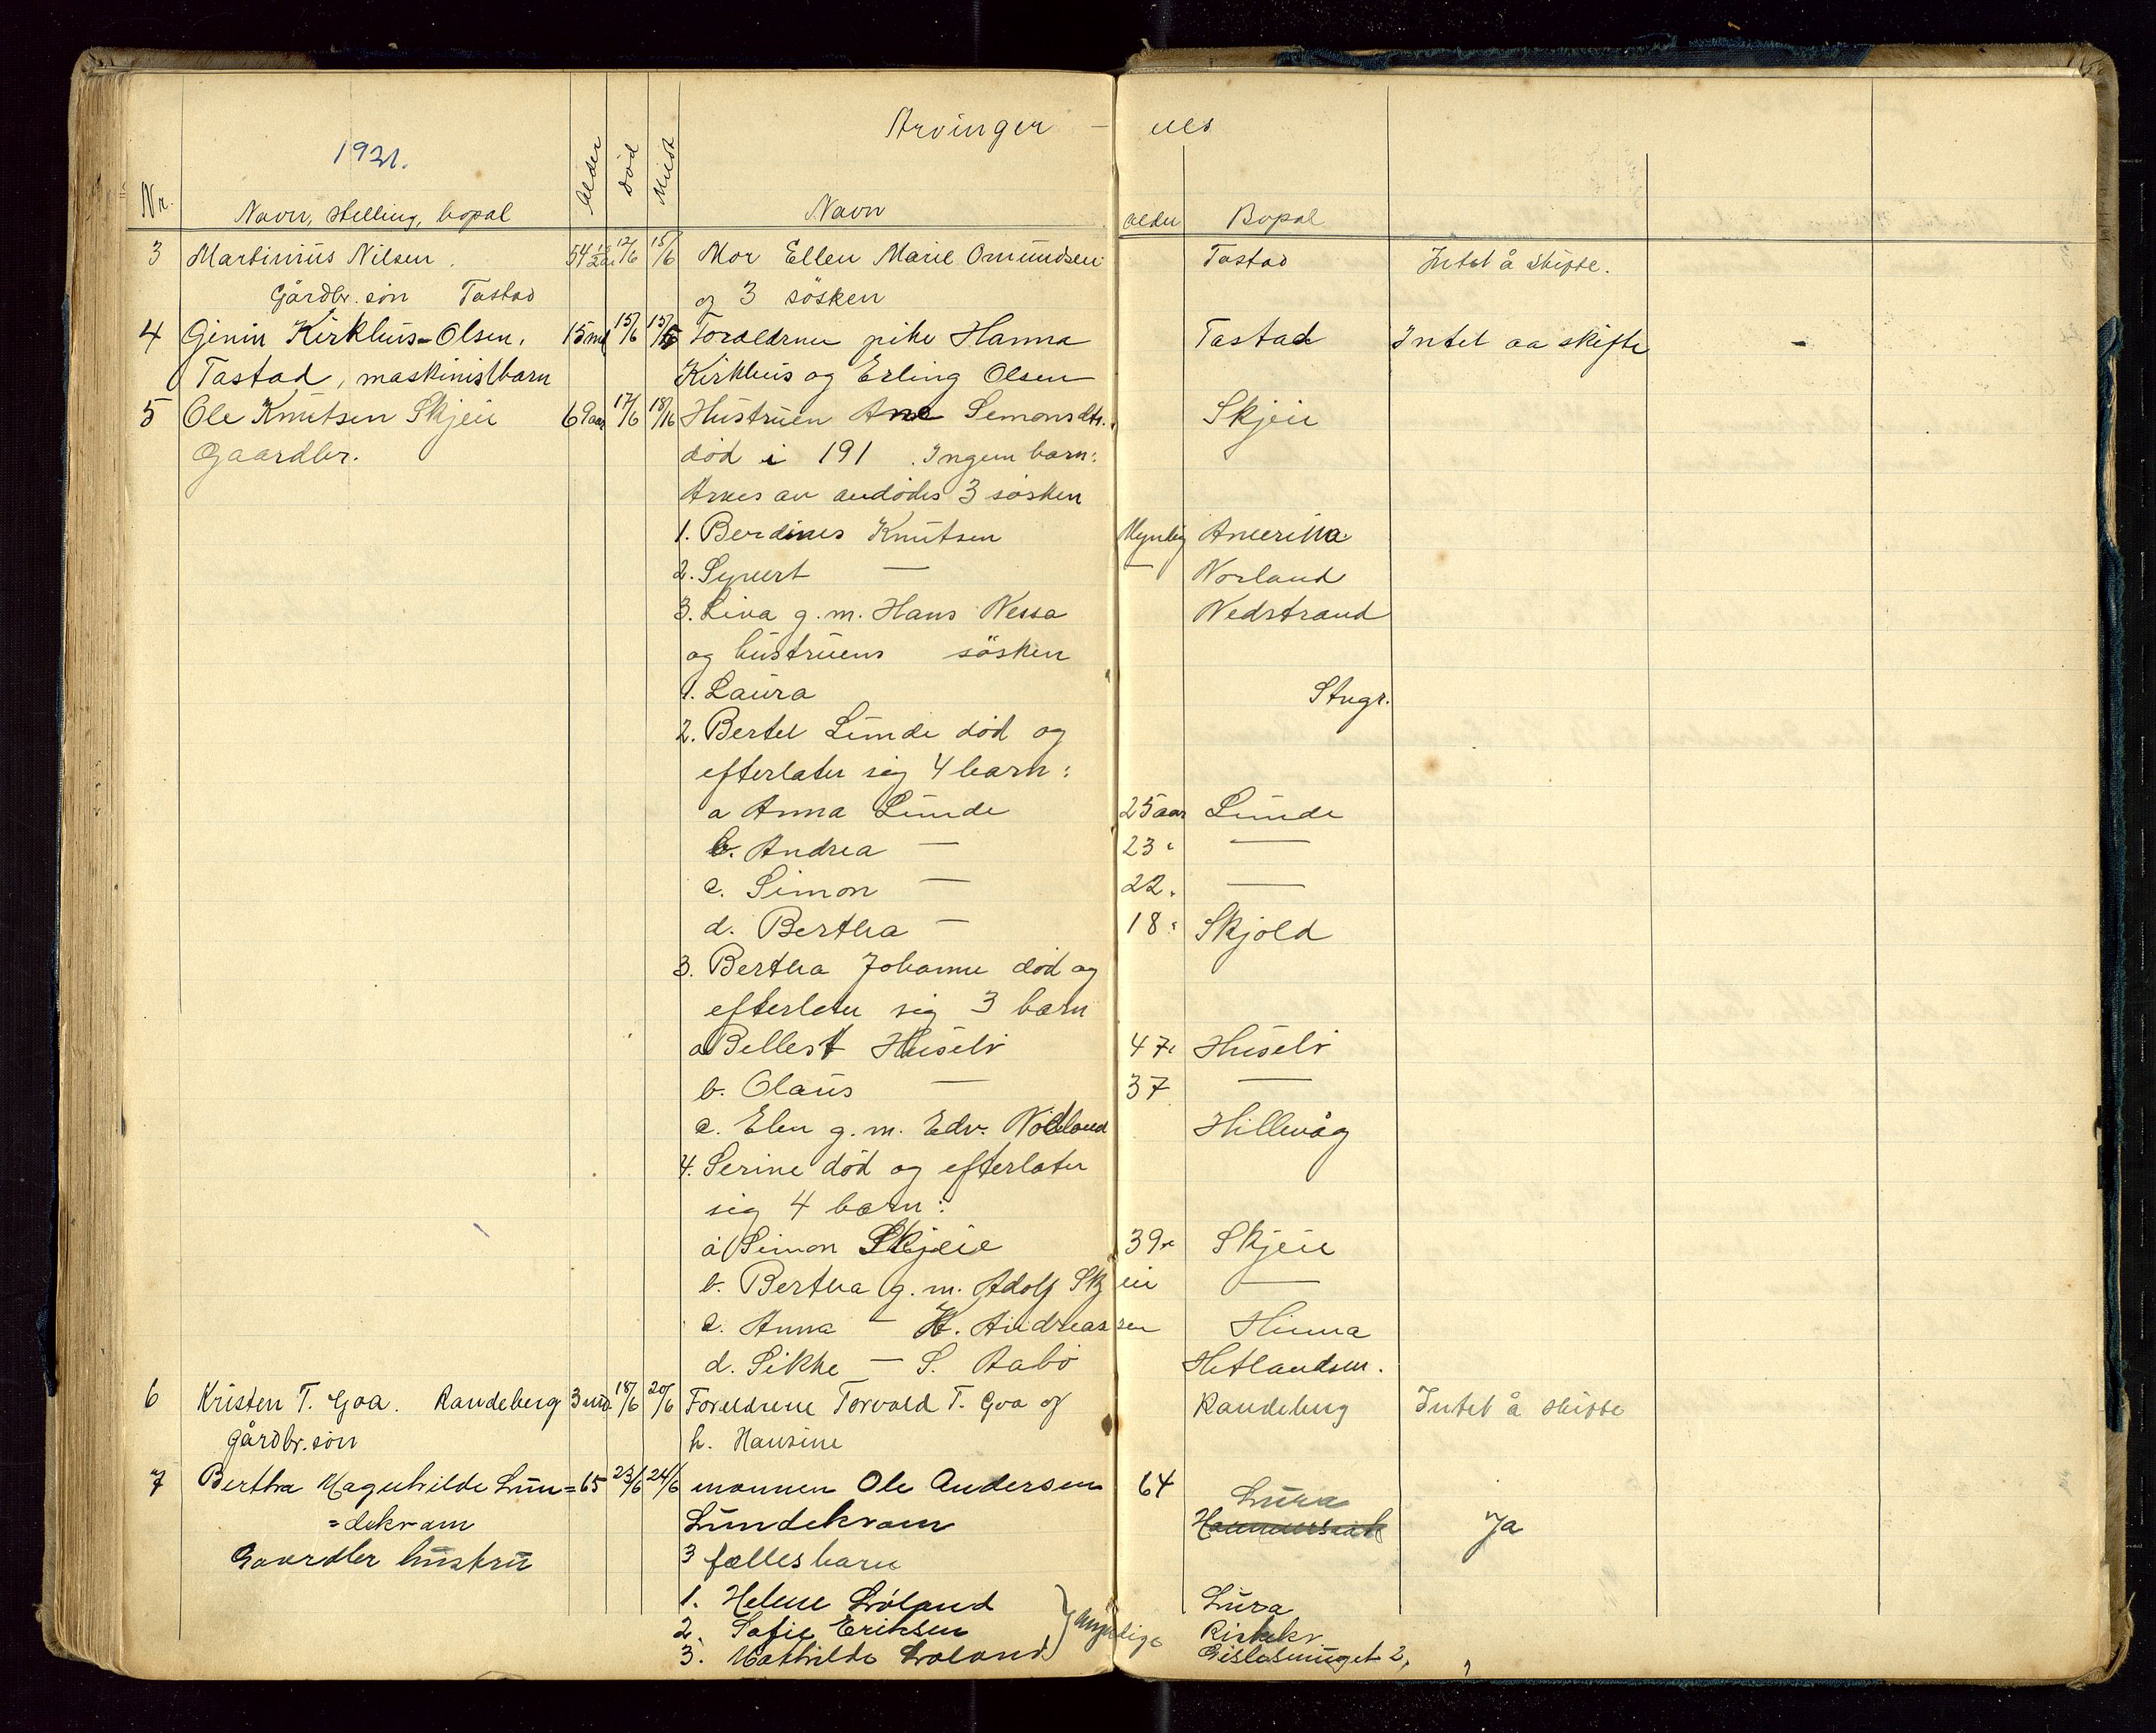 1921.
Arvinger - nes
Nr. Navn, stelling, bopæl Alder Død Meldt Navn alder Bopæl
3 Martinius Nilsen. 54 17/6 15/6 Mor Ellen Marie Omundsen Tastad Intet å skifte.
Gårdbr. søn Tastad og 3 søsken
4 Ginin Kirkhus-Olsen. 15 md 15/6 15/6 Foreldrene pike Hanna Tastad Intet aa skifte -
Tastad, maskinistbarn Kirkhus og Erling Olsen
5 Ole Knutsen Skjeie 69 aar 17/6 18/6 Hustruen Ane Semonsdtr. Skjeie
Gaardbr. død i 191 . Ingen barn:
Arves av avdødes 3 søsken
1. Berdines Knutsen Myndig Amerika
2. Syvert — — Norland
3. Lina g. m. Hans Nessa Nedstrand
og hustruens søsken
1. Laura Stvgr.
2. Bertel Lunde død og
efterlater sig 4 barn:
a Anna Lunde 25 aar Lunde
b. Andrea — 23 " —
c. Simon — 22 " —
d. Bertha — 18 " Skjold
3. Bertha Johanne død og
efterlater sig 3 barn
a Bellest Husebø 47 " Husebø
b. Olaus — 37 —
c. Elen g. m. Edv. Nødland Hillevåg
4. Serine død og efterlater
sig 4 barn:
a Simon Skjeie 39 " Skjeie
b. Bertha g. m. Adolf Skjeie —
c. Anna — K. Andreassen Hinna
d. Sikke — S. Aabø Hetlandsm.
6 Kristen T. Goa. Randeberg 3 md 18/6 20/6 Foreldrene Torvald T. Goa og Randeberg Intet å skifte
gårdbr. søn h. Hansine
7 Bertha Magnhilde Lun= 65 23/6 24/6 mannen Ole Andersen 64 Lura
=dekvam Lundekvam Ja
Gaardbr hustru 3 fælles barn
1. Helene Løland Lura
2. Sofie Eriksen } myndige
3. Mathilde Løland